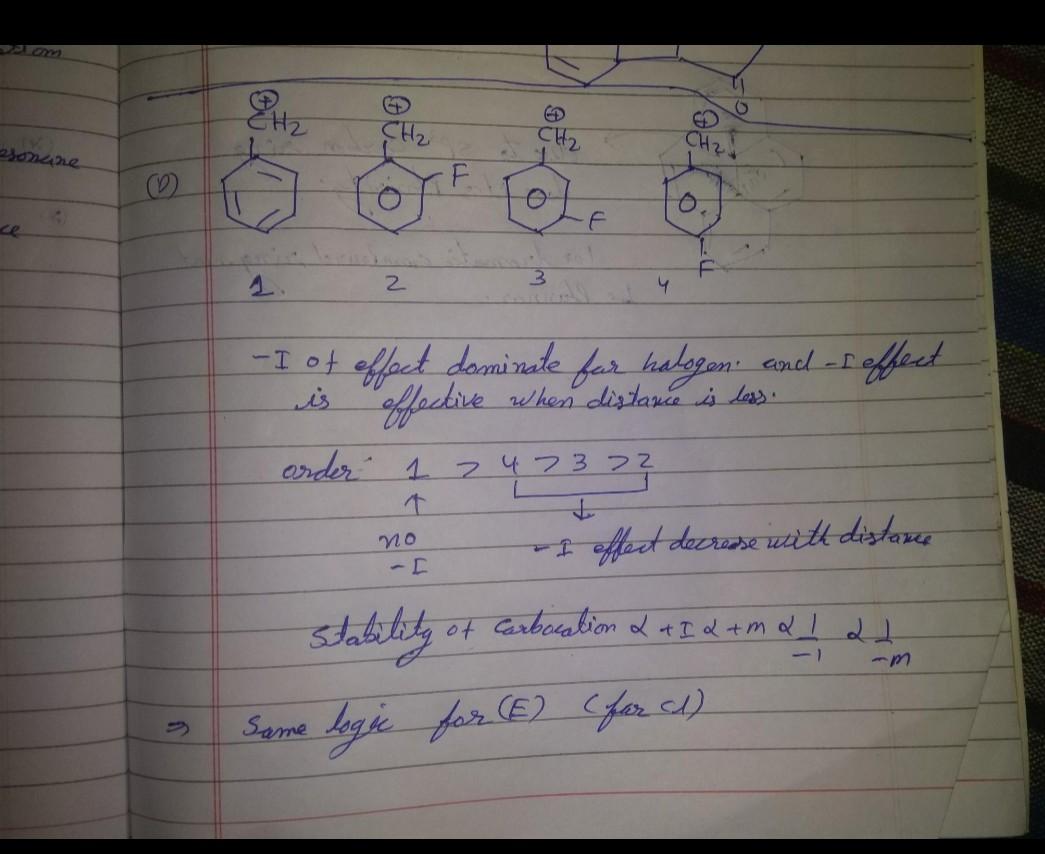 O
⊕ ⊕ ⊕ ⊕
CH2 CH2 CH2 CH2
(D) F F F
1. 2 3 4
-I of effect dominate for halogen. and -I effect
is effective when distance is less.
order 1 > 4 > 3 > 2
↑ ↓
no - I effect decrease with distance
- I
Stability of Carbocation α + I α + m α 1/-I α 1/-m
⇒ Same logic for (E) (for Cl)